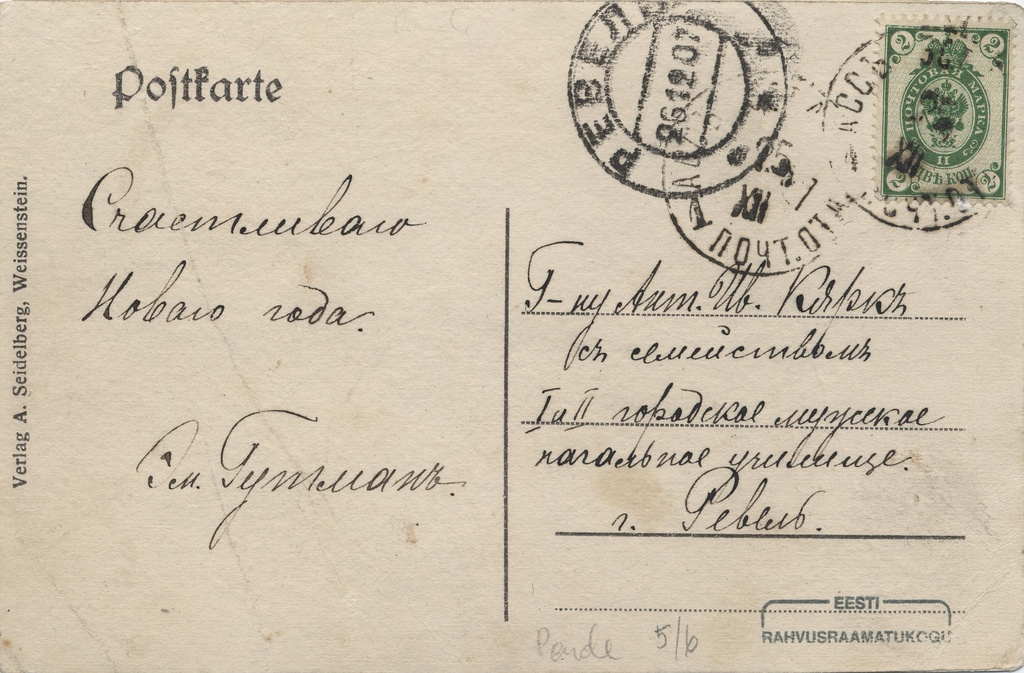 Postkarte
РЕВЕЛЬ
26.12.07
25
XII
ПОЧТ.ОТД.
ПОЧТОВАЯ МАРКА
2 2
II
ДВѢ КОП.
2 2
Verlag A. Seidelberg, Weissenstein.
Счастливаго
Новаго года.
Эм. Гутманъ.
Г-ну Ант. Ив. Кяркъ
съ семействомъ
I и II городское мужское
начальное училище.
г. Ревель.
EESTI
RAHVUSRAAMATUKOGU
5/6